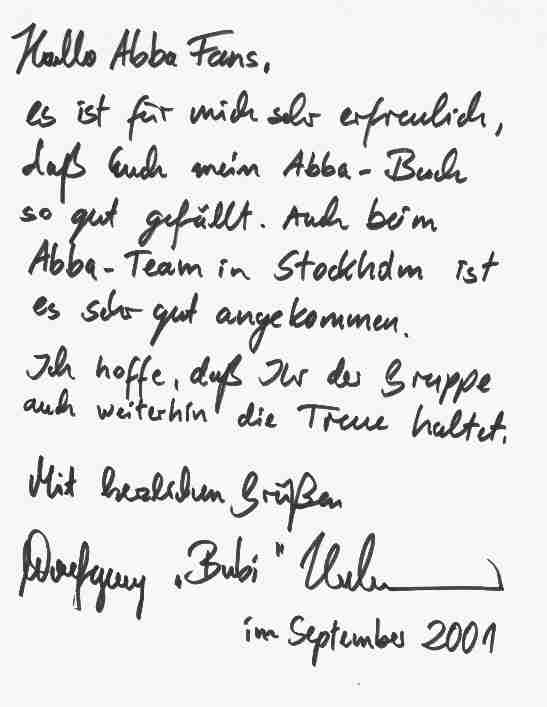 Hallo Abba Fans,
es ist für mich sehr erfreulich,
daß Euch mein Abba-Buch
so gut gefällt. Auch beim
Abba-Team in Stockholm ist
es sehr gut angekommen.
Ich hoffe, daß Ihr der Gruppe
auch weiterhin die Treue haltet.
Mit herzlichen Grüßen
Wolfgang "Bubi"
im September 2001